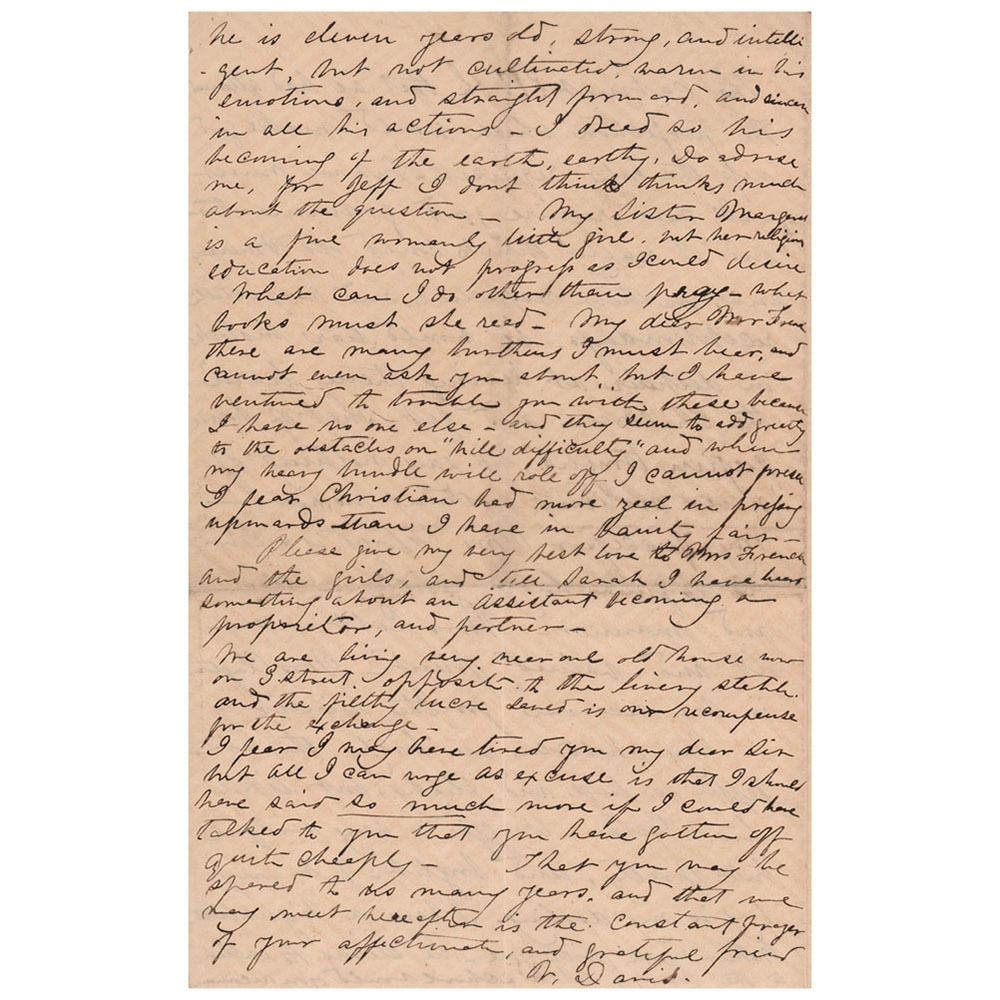 he is eleven years old, strong, and intelli
-gent, but not cultivated, warm in his
emotions, and straight forward, and sincere
in all his actions - I dread so his
becoming of the earth, earthy, Do advise
me, for Jeff I dont think thinks much
about the question - My Sister Margaret
is a fine womanly little girl, but her religious
education does not progress as I could desire
What can I do other than pray - what
books must she read - My dear Mr French
there are many burthens I must bear, and
cannot even ask you about, but I have
ventured to trouble you with these because
I have no one else - and they seem to add greatly
to the obstacles on "hill difficulty" and when
my heavy bundle will role off I cannot
I fear Christian had more zeal in presing
upwards than I have in Vanity fair -
Please give my very best love to Mrs French
and the girls, and tell Sarah I have heard
something about an assistant becoming a
proprietor, and partner -
We are living very near our old house now
on G street opposite to the livery stable
and the filthy lucre saved is our recompense
for the exchange -
I fear I may have tired you my dear Sir
but all I can urge as excuse is that I should
have said so much more if I could have
talked to you that you have gotten off
quite cheaply - That you may be
spared to us many years, and that we
may meet hereafter is the constant prayer
of your affectionate, and grateful friend
V. Davis.